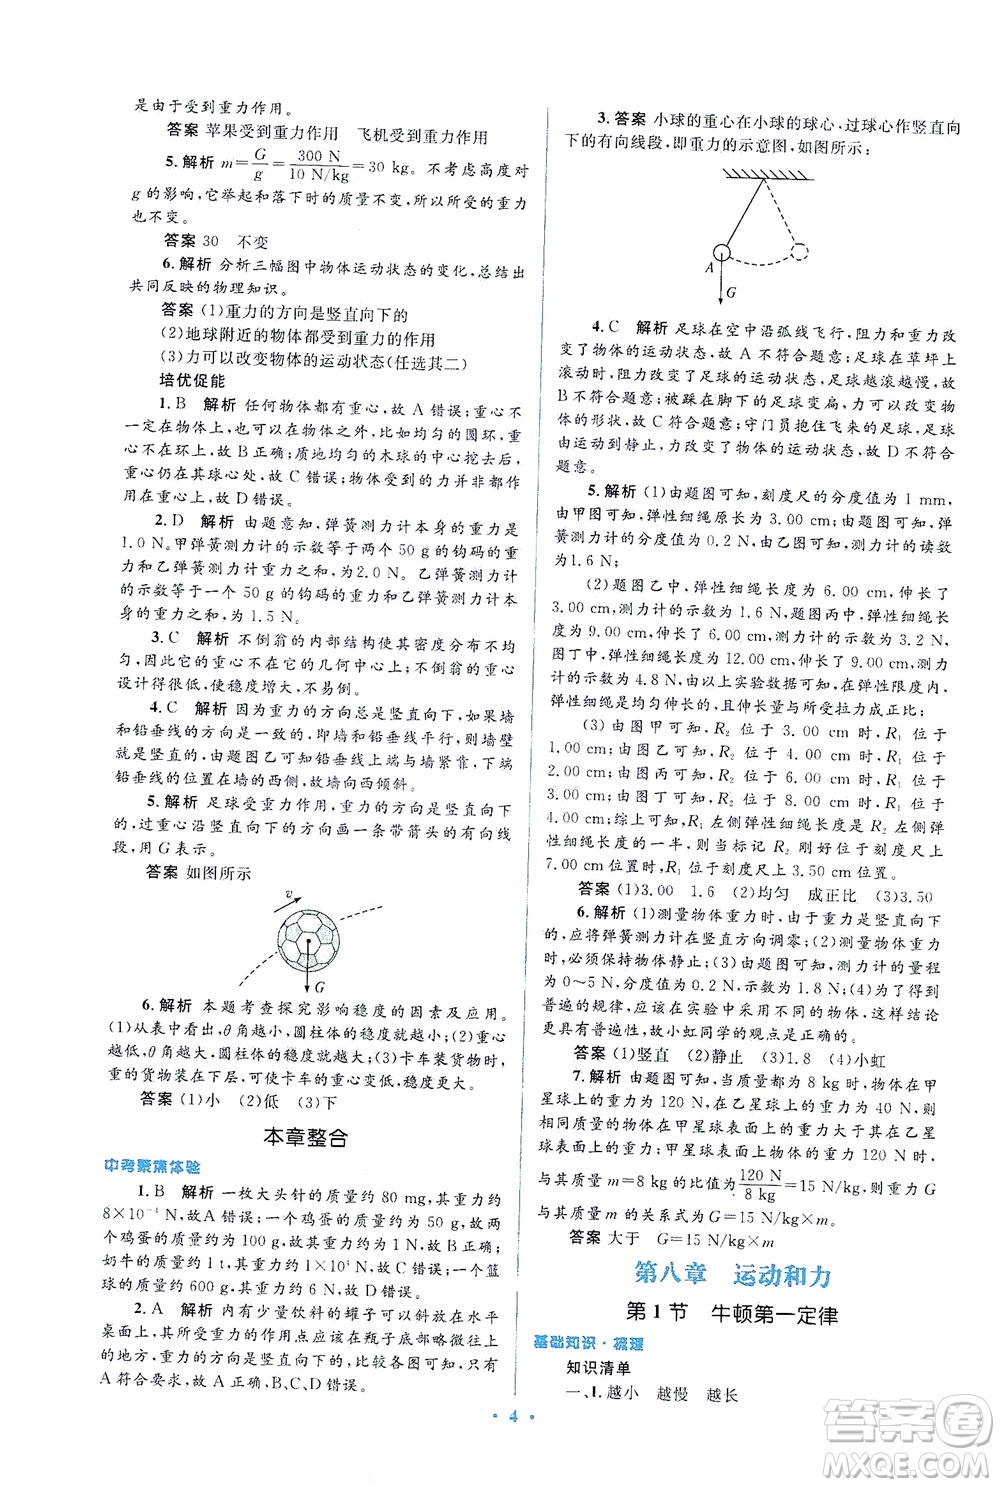 是由于受到重力作用。
答案 苹果受到重力作用 飞机受到重力作用
5.解析 m=G/g=300 N/10 N/kg=30 kg。不考虑高度对
g的影响,它举起和落下时的质量不变,所以所受的重力
也不变。
答案 30 不变
6.解析 分析三幅图中物体运动状态的变化,总结出
共同反映的物理知识。
答案 (1)重力的方向是竖直向下的
(2)地球附近的物体都受到重力的作用
(3)力可以改变物体的运动状态(任选其二)
培优促能
1.B 解析 任何物体都有重心,故A错误;重心不
一定在物体上,也可以在物体之外,比如均匀的圆环,重
心不在环上,故B正确;质地均匀的木球的中心挖去后,
重心仍在其球心处,故C错误;物体受到的力并非都作
用在重心,故D错误。
2.D 解析 由题意知,弹簧测力计本身的重力是
1.0 N。甲弹簧测力计的示数等于两个50 g的钩码的重
力与乙弹簧测力计重力之和,为2.0 N。乙弹簧测力计
的示数等于一个50 g的钩码的重力与乙弹簧测力计本
身的重力之和,为1.5 N。
3.C 解析 不倒翁的内部结构使其密度分布不均
匀,因此,它的重心不在它的几何中心上。不倒翁的重心
设计得很低,使稳度增大,不易倒。
4.C 解析 因为重力的方向总是竖直向下,如果墙
和铅垂线的方向是一致的,即墙和铅垂线平行,则墙壁
就是竖直的;由于题图乙中铅垂线上端与墙紧靠,下端
铅垂线的位置在墙的西侧,故墙向西倾斜。
5.解析 足球受重力作用,重力的方向是竖直向下
的,过重心沿竖直向下的方向画一条带箭头的有向线
段,用G表示。
答案 如图所示
v
G
6.解析 本题考查探究影响稳度的因素及应用。
(1)从表中看出,θ角越小,圆柱体的稳度就越小;(2)重心
越低,θ角越大,圆柱体的稳度越大;(3)卡车装货物时,
重的货物装在下层,可以使卡车的重心变低,稳度更大。
答案 (1)小 (2)低 (3)下
本章整合
中考聚焦体验
1.B 解析 一枚大头针的质量约80 mg,其重力约
8×10⁻⁴ N,故A错误;一个鸡蛋的质量约为50 g,故两
个鸡蛋的质量约100 g,其重力约为1 N,故B正确;一头
奶牛的质量约1 t,其重力约为10⁴ N,故C错误;一个篮
球的质量约600 g,其重力约为6 N,故D错误。
2.A 解析 内有少量饮料的罐子可以斜放在水平
桌面上,重力的作用点应该在瓶子底部略微倾斜向上
的地方,重力的方向是竖直向下的,比较各图可知,只有
A符合要求,故A正确,B、C、D错误。
3.答案 小球的重心在小球的球心,过球心作竖直向
下的有向线段,即重力的示意图,如图所示:
A
G
4.C 解析 足球在空中沿弧线飞行,阻力和重力改
变了物体的运动状态,故A不符合题意;足球在草坪上
滚动时,阻力改变了足球的运动状态,足球越滚越慢,故
B不符合题意;被踩在脚下的足球变扁,力可以改变物
体的形状,故C符合题意;守门员抱住飞来的足球,足球
由运动到静止,力改变了物体的运动状态,故D不符合
题意。
5.解析 (1)由题图可知,刻度尺的分度值为1 mm,
由甲图可知,弹性细绳原长为3.00 cm;由图可知,弹
簧测力计的分度值为0.2 N,由乙图可知,测力计的读数
为1.6 N;
(2)题图乙中,弹性细绳长度为6.00 cm,伸长了
3.00 cm,测力计的示数为1.6 N,题图丙中,弹性细绳长
度为9.00 cm,伸长了6.00 cm,测力计的示数为3.2 N,
图丁中,弹性细绳长度为12.00 cm,伸长了9.00 cm,测力
计的示数为4.8 N,由以上实验数据可知,在一定限度内,弹
性细绳是均匀伸长的,且伸长量与所受拉力成正比;
(3)由图甲可知,R₂位于3.00 cm时,R₁位于
1.50 cm;由图乙可知,R₂位于4.00 cm时,R₁位于
2.00 cm;由图丙可知,R₂位于6.00 cm时,R₁位于
3.00 cm;由图丁可知,R₂位于8.00 cm时,R₁位于
4.00 cm;综上可知,R₁左侧弹性绳长度是R₂左侧弹
性绳长度的一半,则当标记R₂刚好与刻度尺上
7.00 cm位置时,R₁位于刻度尺上3.50 cm位置。
答案 (1)3.00 1.6 (2)均匀 成正比 (3)3.50
6.解析 (1)测量物体重力时,由于重力是竖直向下
的,应将弹簧测力计在竖直方向调零;(2)测量物体重力
时,必须保持物体静止;(3)由图可知,测力计的量程
为0~5 N,分度值为0.2 N,示数为1.8 N;(4)为了得到
普遍的规律,应该在实验中改变物体质量,这样结论
更具有普遍性,故小虹同学的观点是正确的。
答案 (1)竖直 (2)静止 (3)1.8 (4)小虹
7.解析 由题图可知,当质量为8 kg时,物体在甲
星球上的重力为120 N,在乙星球上的重力为40 N。由
此可知,质量相同的物体在甲星球表面上的重力大于乙
星球表面上的重力;甲星球上,物体在星球表面上的重力
与其质量m=8 kg的比值为120 N/8 kg=15 N/kg,所以重力G
与其质量m的关系式为G=15 N/kg×m。
答案 大于 G=15 N/kg×m
第八章 运动和力
第1节 牛顿第一定律
基础知识·梳理
知识清单
一、1.越小 越慢 越长
4
答案卷
MXQE.COM